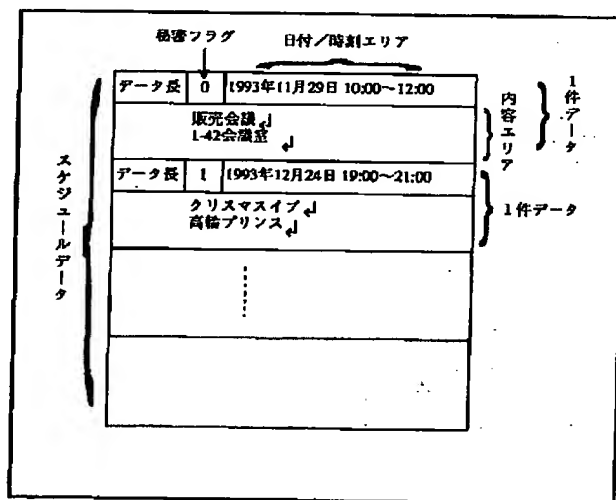 秘密フラグ
日付/時刻エリア
データ長 0 1993年11月29日 10:00~12:00
販売会議↲
1-42会議室
↲
内容エリア
1件データ
データ長 1 1993年12月24日 19:00~21:00
クリスマスイブ↲
高輪プリンス↲
1件データ
スケジュールデータ